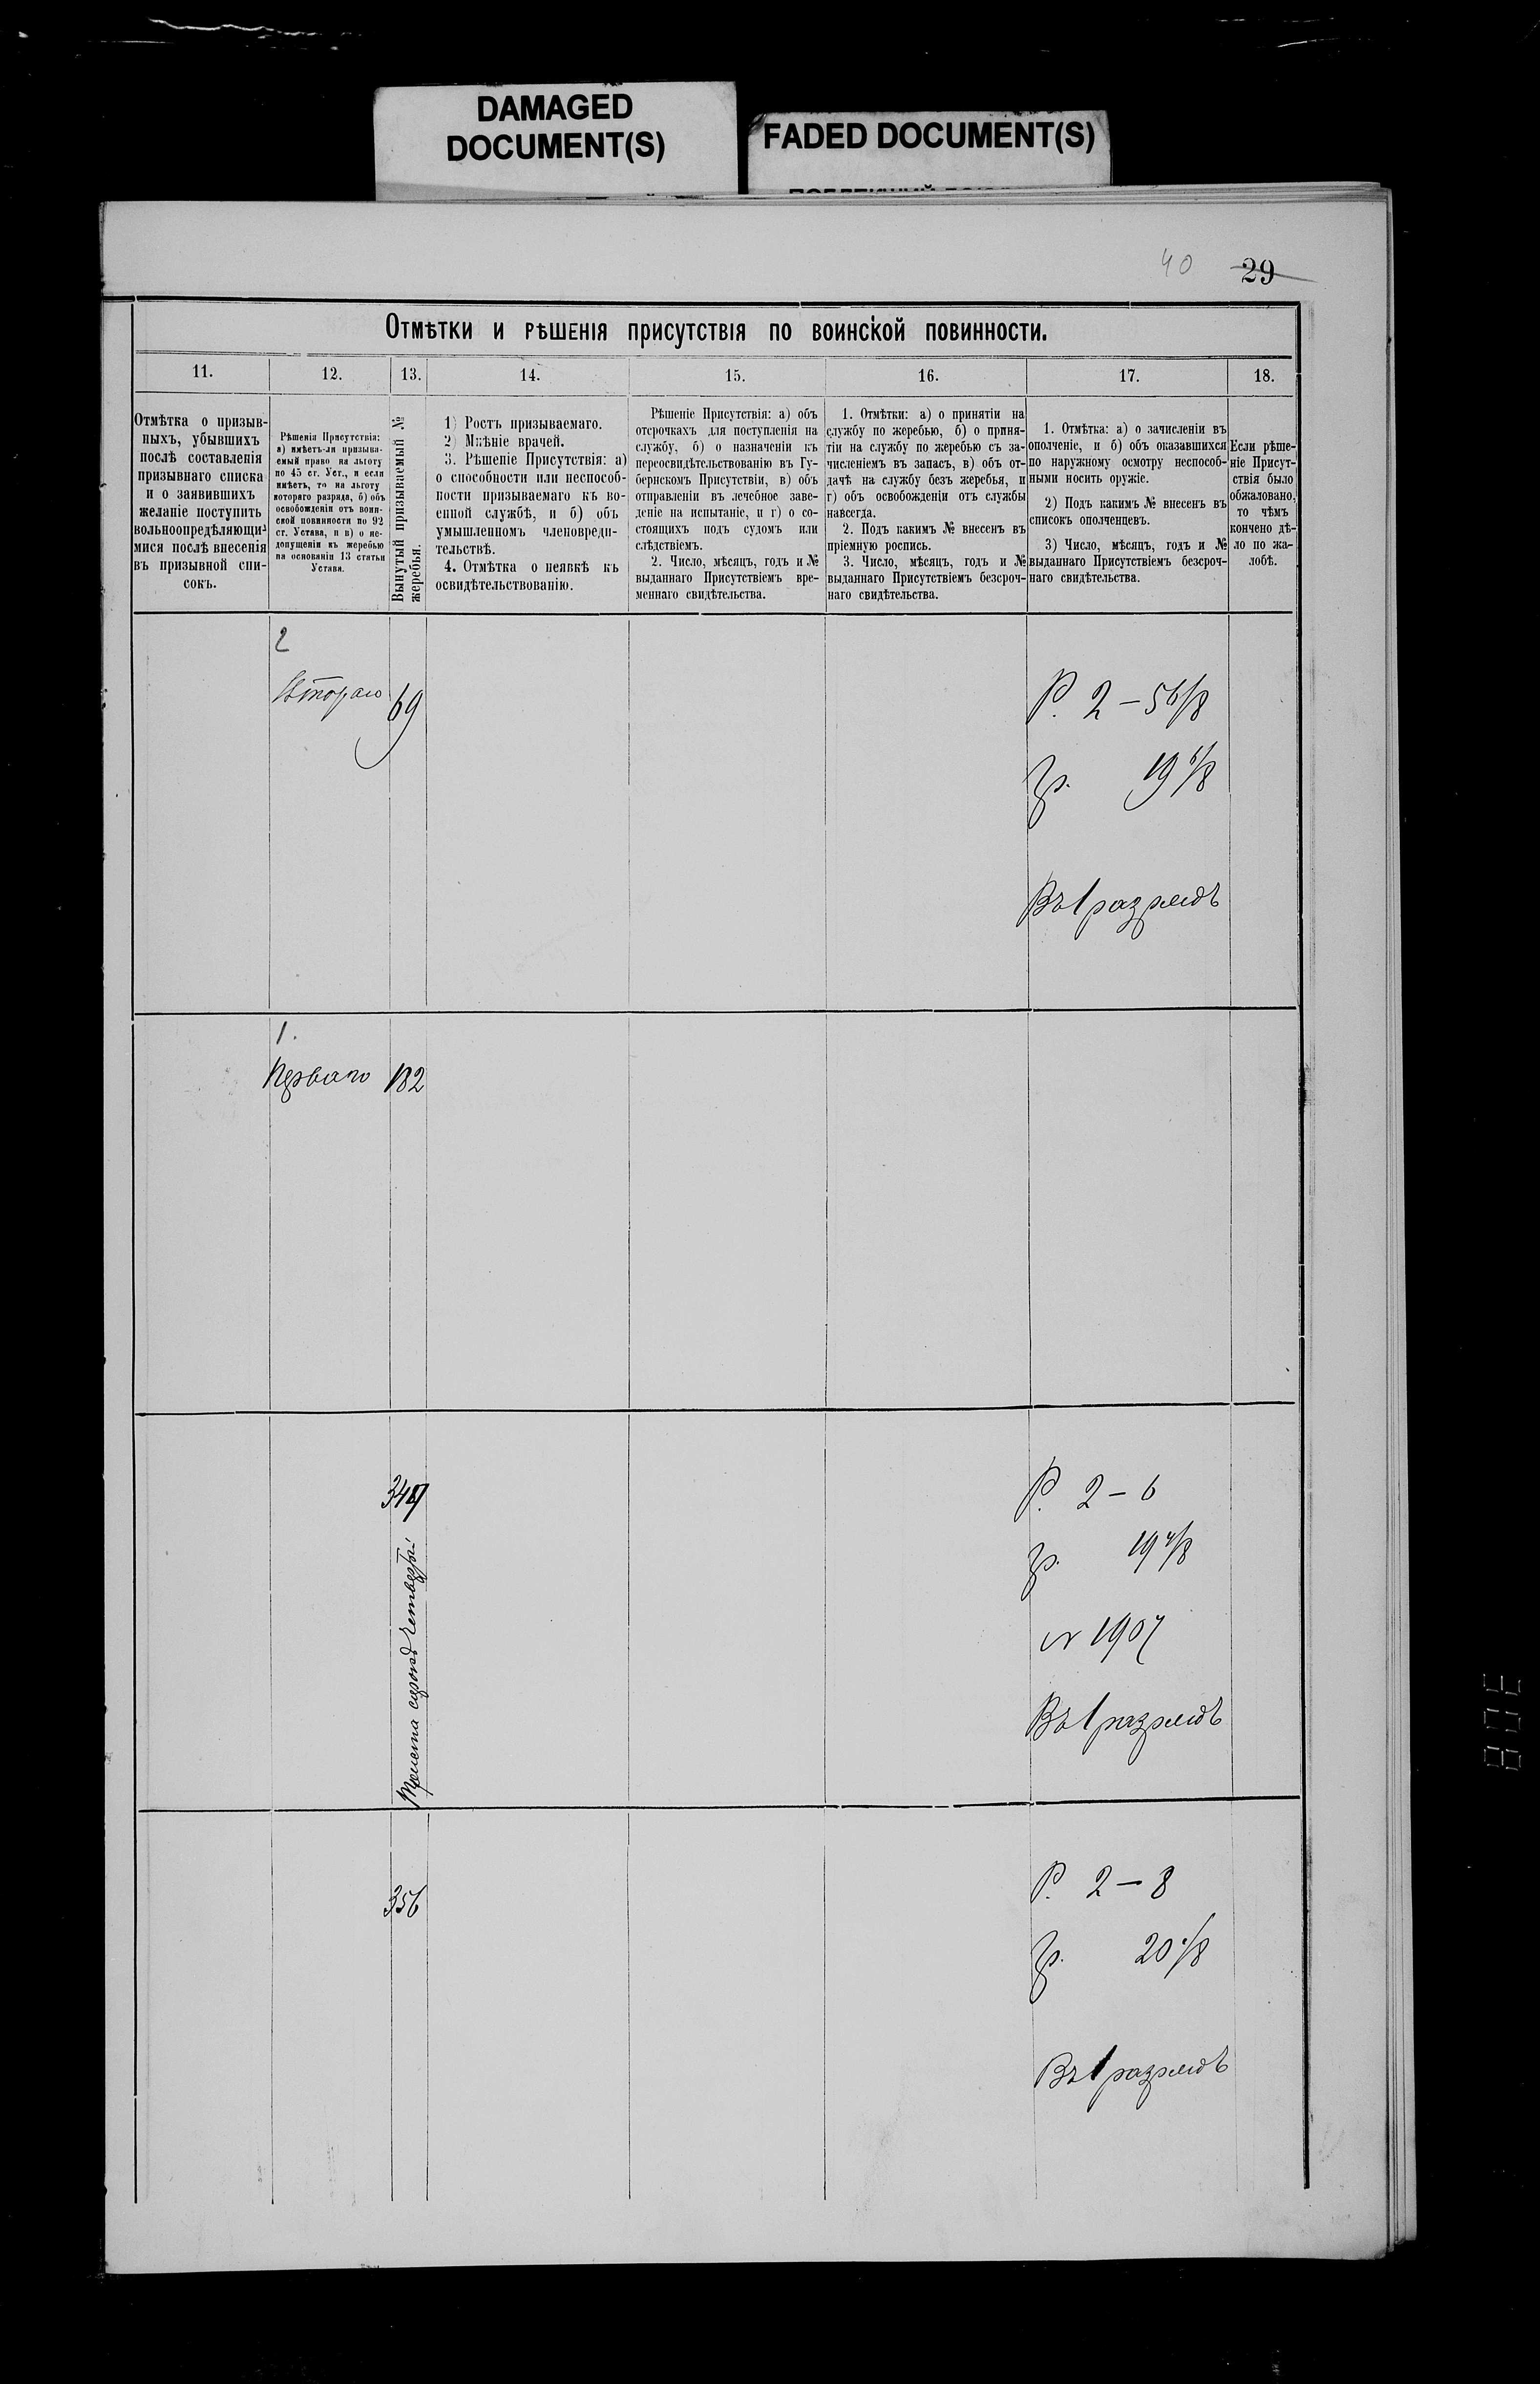 DAMAGED
DOCUMENT(S)
FADED DOCUMENT(S)
40 29
Отмѣтки и рѣшенія присутствія по воинской повинности.
11. 12. 13. 14. 15. 16. 17. 18.
Отмѣтка о призыв-
ныхъ, убывшихъ
послѣ составленія
призывнаго списка
и о заявившихъ
желаніе поступить
вольноопредѣляющи-
мися послѣ внесенія
въ призывной спи-
сокъ.
Рѣшенія Присутствія:
а) имѣетъ-ли призыва-
емый право на льготу
по 45 ст. Уст., и если
имѣетъ, то на льготу
котораго разряда, б) объ
освобожденіи отъ воин-
ской повинности по 92
ст. Устава, и в) о не-
допущеніи къ жеребью
на основаніи 13 статьи
Устава.
Вынутый призываемый №
жеребья.
1) Ростъ призываемаго.
2) Мнѣніе врачей.
3. Рѣшеніе Присутствія: а)
о способности или неспособ-
ности призываемаго къ во-
енной службѣ, и б) объ
умышленномъ членовреди-
тельствѣ.
4. Отмѣтка о неявкѣ къ
освидѣтельствованію.
Рѣшеніе Присутствія: а) объ
отсрочкахъ для поступленія на
службу, б) о назначеніи къ
переосвидѣтельствованію въ Гу-
бернскомъ Присутствіи, в) объ
отправленіи въ лечебное заве-
деніе на испытаніе, и г) о со-
стоящихъ подъ судомъ или
слѣдствіемъ.
2. Число, мѣсяцъ, годъ и №
выданнаго Присутствіемъ вре-
меннаго свидѣтельства.
1. Отмѣтки: а) о принятіи на
службу по жеребью, б) о приня-
тіи на службу по жеребью съ за-
численіемъ въ запасъ, в) объ от-
дачѣ на службу безъ жеребья, и
г) объ освобожденіи отъ службы
навсегда.
2. Подъ какимъ № внесенъ въ
пріемную роспись.
3. Число, мѣсяцъ, годъ и №
выданнаго Присутствіемъ безсроч-
наго свидѣтельства.
1. Отмѣтка: а) о зачисленіи въ
ополченіе, и б) объ оказавшихся
по наружному осмотру неспособ-
ными носить оружіе.
2) Подъ какимъ № внесенъ въ
списокъ ополченцевъ.
3) Число, мѣсяцъ, годъ и №
выданнаго Присутствіемъ безсроч-
наго свидѣтельства.
Если рѣше-
ніе Присут-
ствія было
обжаловано,
то чѣмъ
кончено дѣ-
ло по жа-
лобѣ.
2
Второго 69
Р. 2 — 5 6/8
гр. 19 6/8
Въ 1 разрядъ
1.
Перваго 182
Триста сорокъ
Р. 2 — 6
гр. 19 4/8
№ 1907
Въ 1 разрядъ
356
Р. 2 — 8
гр. 20
Въ 1 разрядъ
308